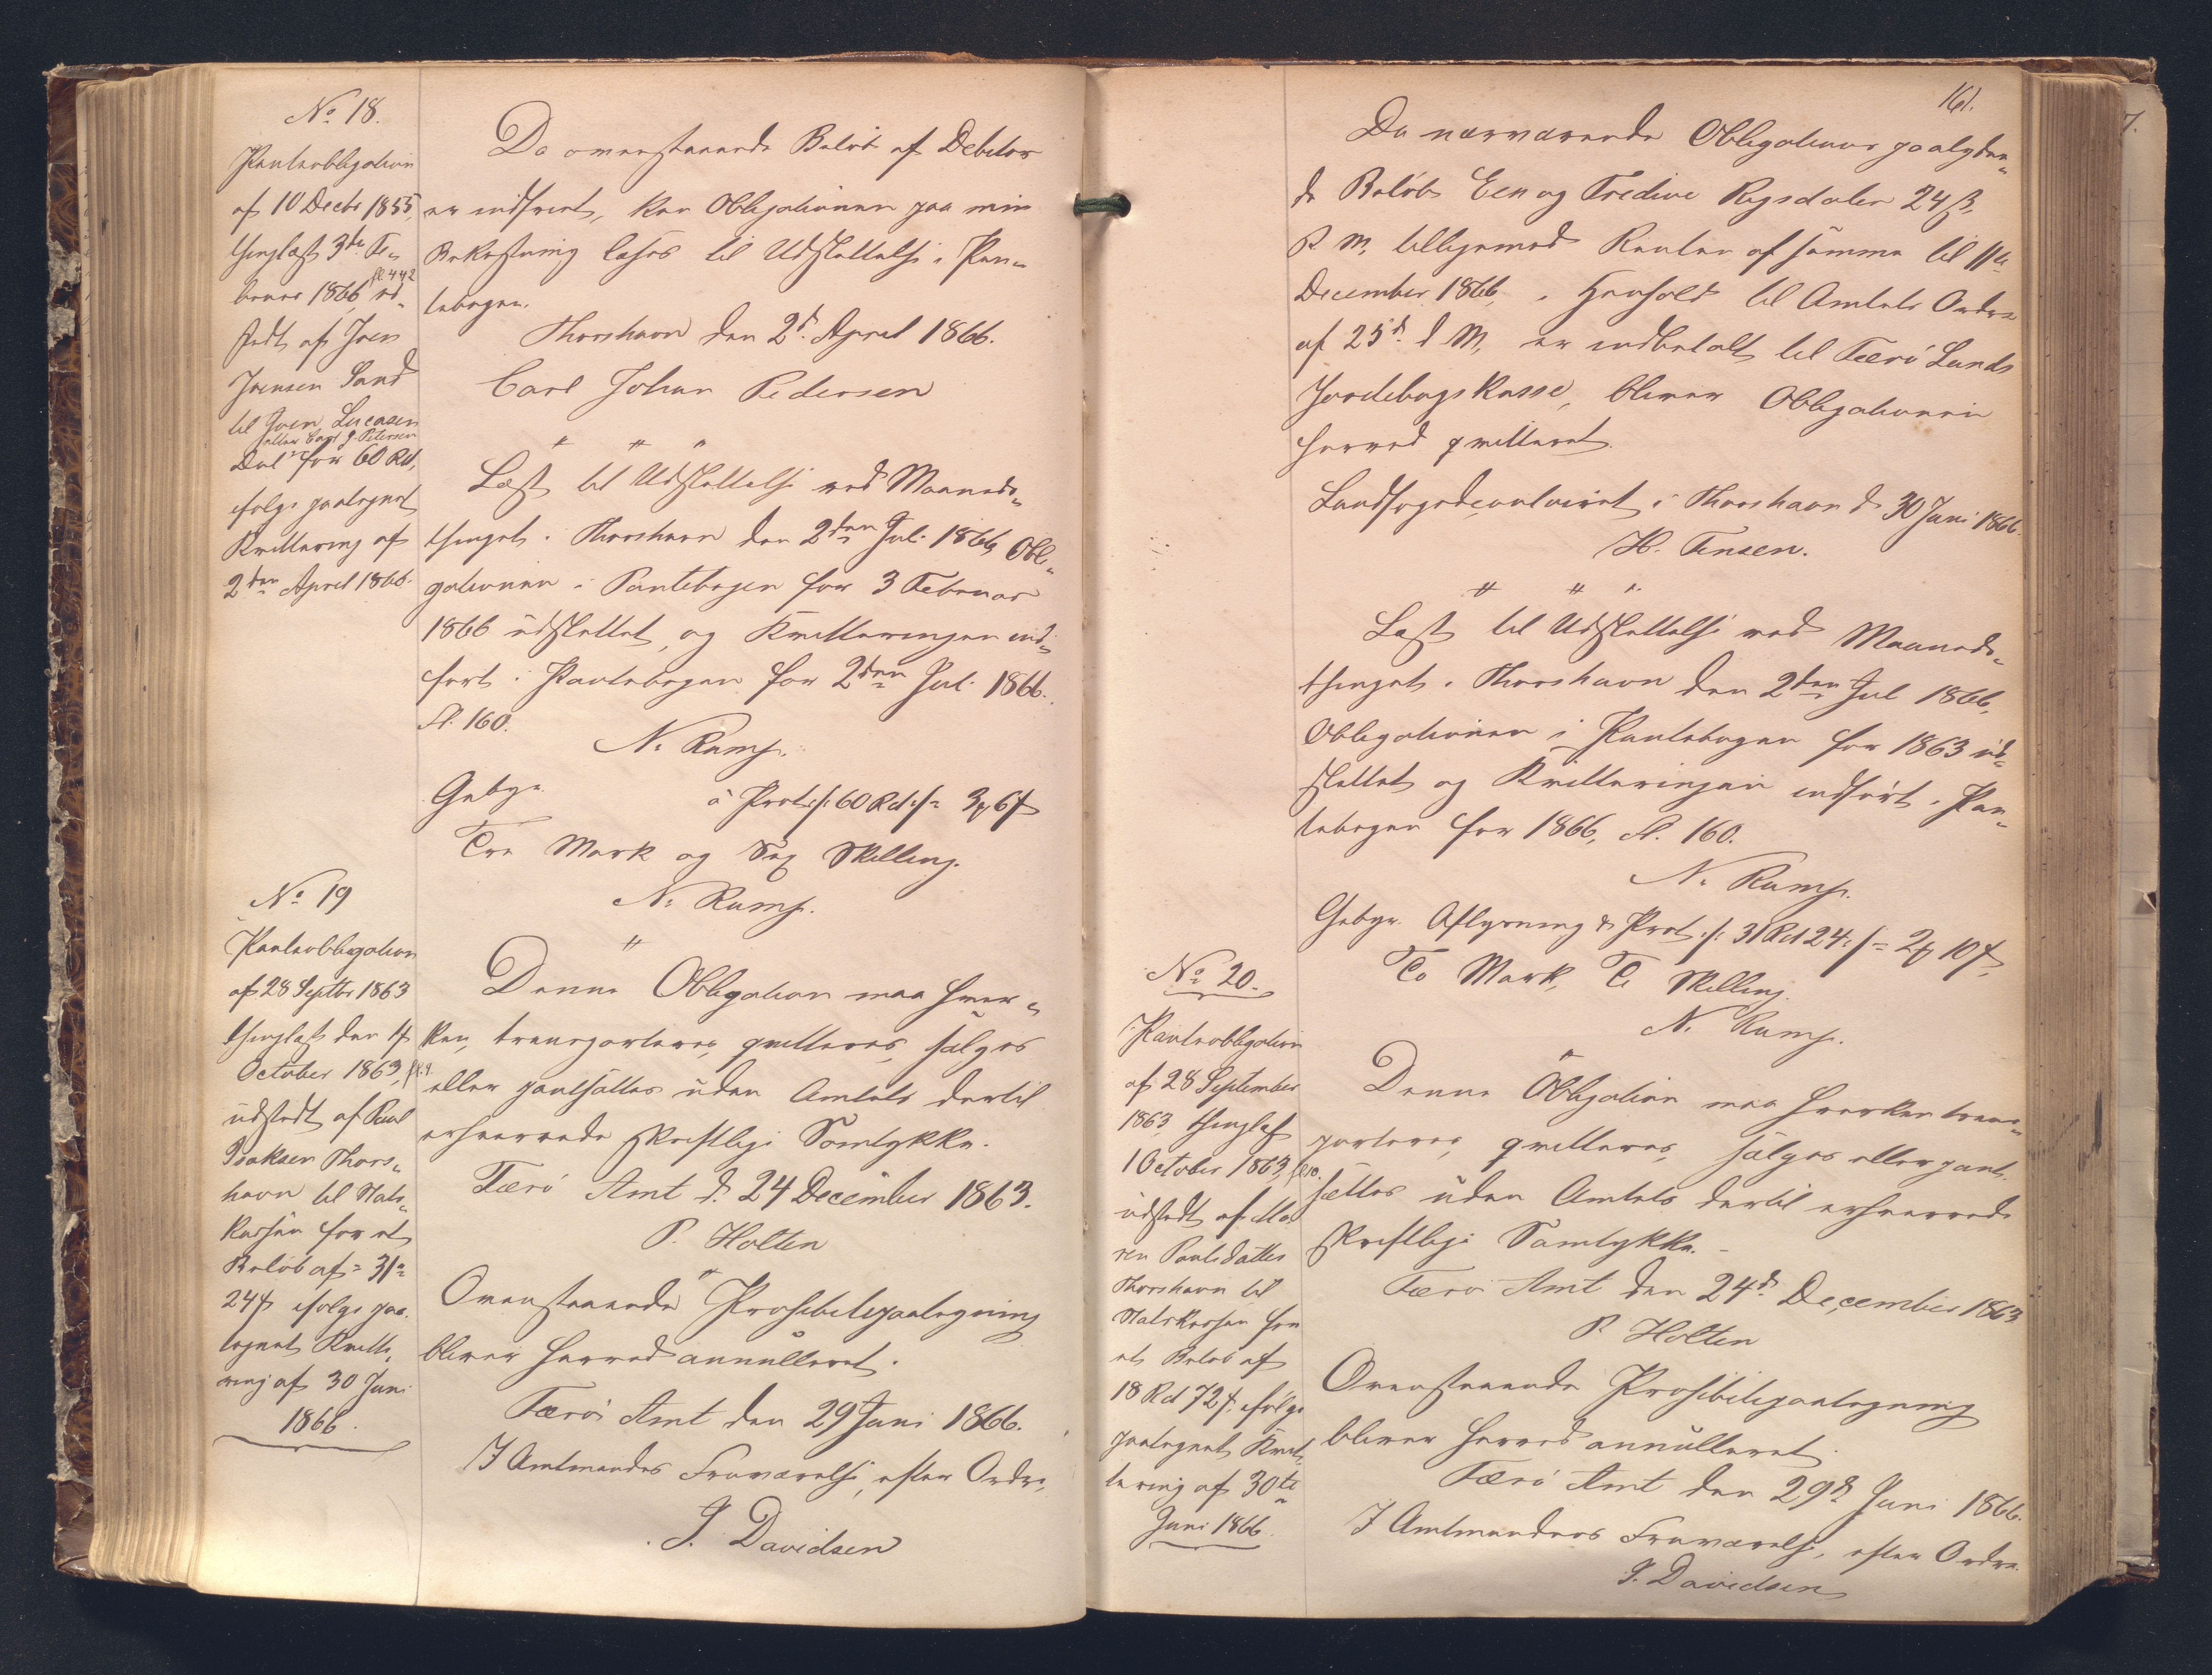 No 18.
Panteobligation
af 10 Decbr 1855,
thinglæst 3de Fe-
bruar 1866, fol 442 ud-
stedt af Joen
Joensen Sand
til Joen Lucasen
eller Carl J. Petersen
Dal for 60 Rd,
ifølge paategnet
Kvittering af
2den April 1866.
Da ovenstaaende Beløb af Debitor
er indfriet, kan Obligationen paa min
Bekostning læses til Udslettelse i Pan-
tebogen.
Thorshavn den 2d April 1866.
Carl Johan Pedersen
" " "
Læst til Udslettelse ved Maaneds-
thinget i Thorshavn den 2den Juli 1866, Obli-
gationen i Pantebogen for 3 Februar
1866 udslettet, og Kvitteringen ind-
ført i Pantebogen for 2den Juli 1866.
Fl. 160.
N. Rump.
Gebyr
à Prot :/: 60 Rd :/: = 3 M 6 ß
Tre Mark og Sex Skilling.
N. Rump.
"
No 19
Panteobligation
af 28 Septbr 1863
thinglæst den 1
October 1863, fl. 9.
udstedt af Poul
Isaksen Thors-
havn til Stats-
kassen for et
Beløb af = 31 =
24 ß ifølge paa-
tegnet Kvitte-
ring af 30 Juni
1866.
Denne Obligation maa hver-
ken, transporteres, qvitteres, sælges
eller pantsættes uden Amtets dertil
erhvervede skriftlige Samtykke.
Færö Amt d. 24 December 1863.
P. Holten
"
Ovenstaaende Prohibitipaategning
bliver herved annulleret.
Færö Amt den 29 Juni 1866.
I Amtmandes Fraværelse, efter Ordre,
J. Davidsen
161.
Da nærværende Obligations paalyden-
de Beløb Een og Tredive Rigsdaler 24 ß,
R. M. tilligemed Renter af samme til 11te
December 1866, i Henhold til Amtets Ordre
af 25d d. M, er indbetalt til Færö Lands
Jordebogskasse, bliver Obligationen
herved qvitteret.
Landfogedcontoiret i Thorshavn d. 30 Juni 1866.
H. Tensen.
" " "
Læst til Udslettelse ved Maaneds-
thinget i Thorshavn den 2den Juli 1866,
Obligationen i Pantebogen for 1863 ud-
slettet og Kvitteringen indført i Pan-
tebogen for 1866, Fl. 160.
N. Rump.
Gebyr Aflysning & Prot :/: 31 Rd 24 :/: = 2 M 10 ß,
To Mark, Ti Skilling.
N. Rump.
"
No 20.
Panteobligation
af 28 September
1863 thinglæst
1 October 1863, fl 10.
udstedt af Ma-
ren Poulsdatter
Thorshavn til
Statskassen for
et Beløb af
18 Rd 72 ß ifølge
paategnet Kvit-
tering af 30te
Juni 1866.
Denne Obligation maa hverken trans-
porteres, qvitteres, sælges eller pant-
sættes uden Amtets dertil erhvervede
skriftlige Samtykke. -
Færö Amt den 24d December 1863
P. Holten
Ovenstaaende Prohibitipaategning
bliver herved annulleret.
Færö Amt den 29d Juni 1866.
I Amtmandens Fraværelse, efter Ordre.
J. Davidsen